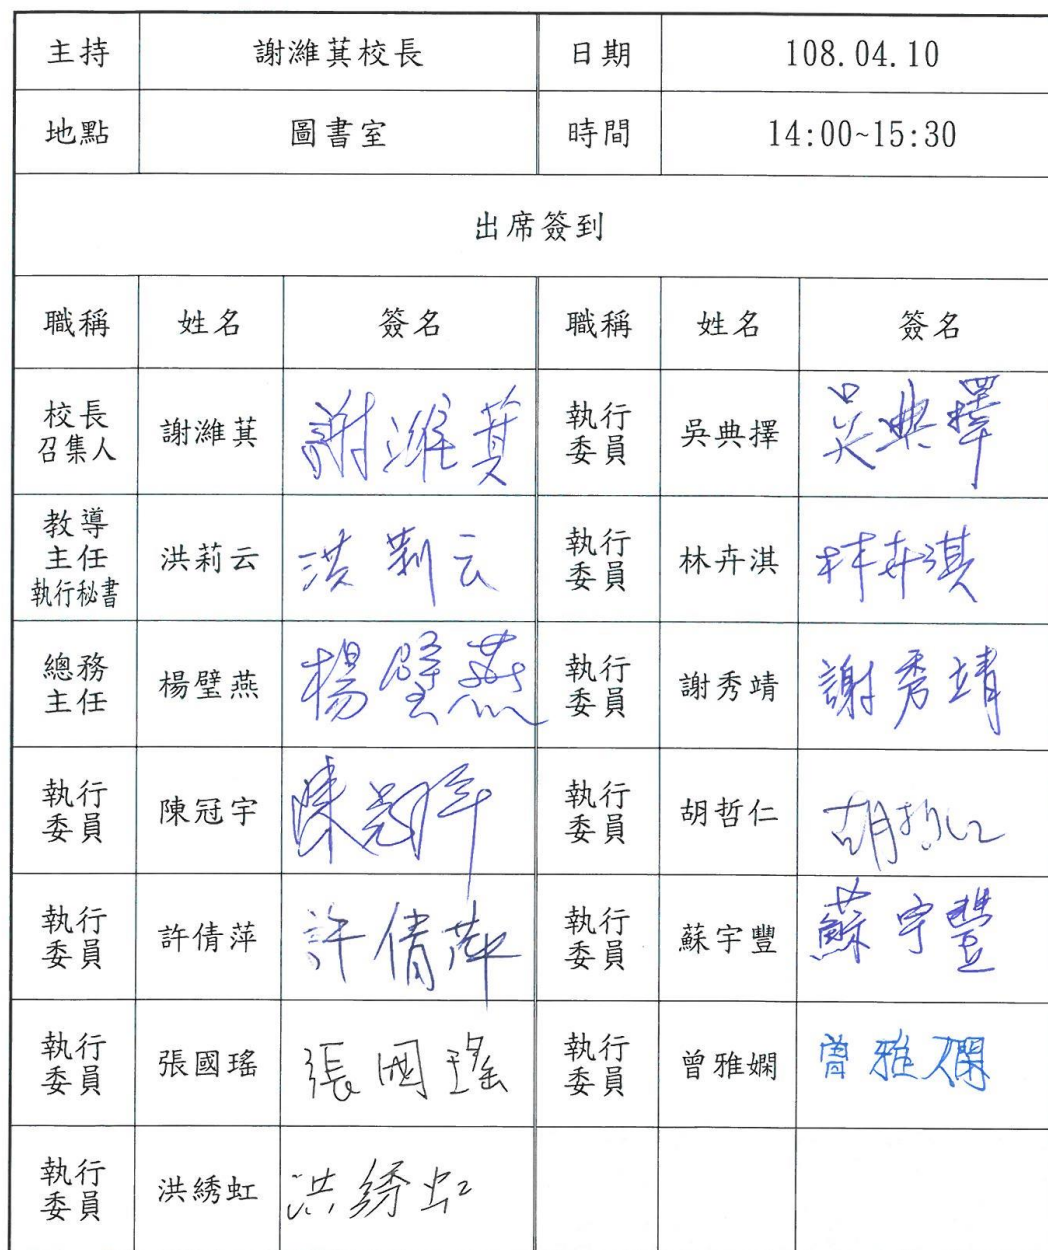 主持 謝濰萁校長 日期 108.04.10
地點 圖書室 時間 14:00~15:30
出席簽到
職稱 姓名 簽名 職稱 姓名 簽名
校長 召集人 謝濰萁 謝濰萁 執行委員 吳典擇 吳典擇
教導主任 執行秘書 洪莉云 洪莉云 執行委員 林卉淇 林卉淇
總務主任 楊壁燕 楊壁燕 執行委員 謝秀靖 謝秀靖
執行委員 陳冠宇 陳冠宇 執行委員 胡哲仁 胡哲仁
執行委員 許倩萍 許倩萍 執行委員 蘇宇豐 蘇宇豐
執行委員 張國瑤 張國瑤 執行委員 曾雅嫻 曾雅嫻
執行委員 洪綉虹 洪綉虹